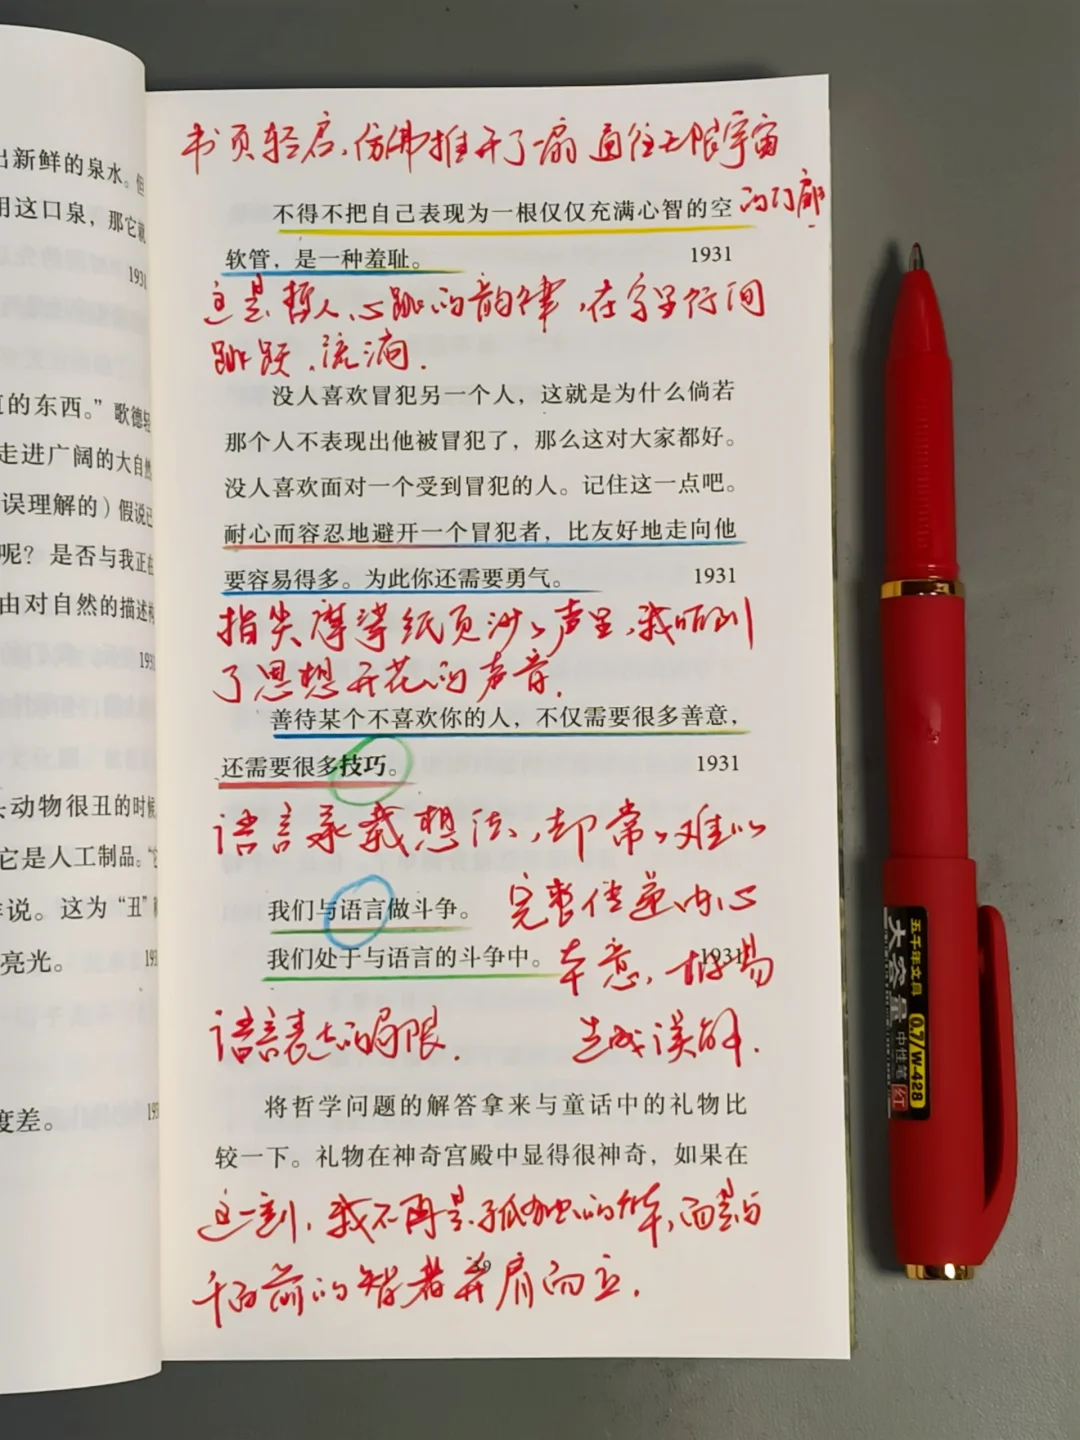 出新鲜的泉水。但
用这口泉，那它就
1931
直的东西。”歌德轻
走进广阔的大自然
误理解的）假说已
呢？是否与我正在
由对自然的描述构
1931
动物很丑的时候，
它是人工制品。“它
说。这为“丑”
亮光。
193
度差。
193
书页轻启，仿佛推开了一扇通往无限宇宙
的门廊
不得不把自己表现为一根仅仅充满心智的空
软管，是一种羞耻。 1931
这是哲人心跳的韵律，在字里行间
跳跃、流淌.
没人喜欢冒犯另一个人，这就是为什么倘若
那个人不表现出他被冒犯了，那么这对大家都好。
没人喜欢面对一个受到冒犯的人。记住这一点吧。
耐心而容忍地避开一个冒犯者，比友好地走向他
要容易得多。为此你还需要勇气。 1931
指尖摩挲纸页沙沙声里，我听到
了思想开花的声音.
善待某个不喜欢你的人，不仅需要很多善意，
还需要很多技巧。 1931
语言承载想法，却常常难以
完整传递内心
本意，极易
造成误解.
我们与语言做斗争。
我们处于与语言的斗争中。 1931
语言表达的局限.
将哲学问题的解答拿来与童话中的礼物比
较一下。礼物在神奇宫殿中显得很神奇，如果在
这一刻，我不再是孤独的个体，而是与
千百年前的智者并肩而立.
39
五千年文具
大容量
0.7/W-428
中性笔
红